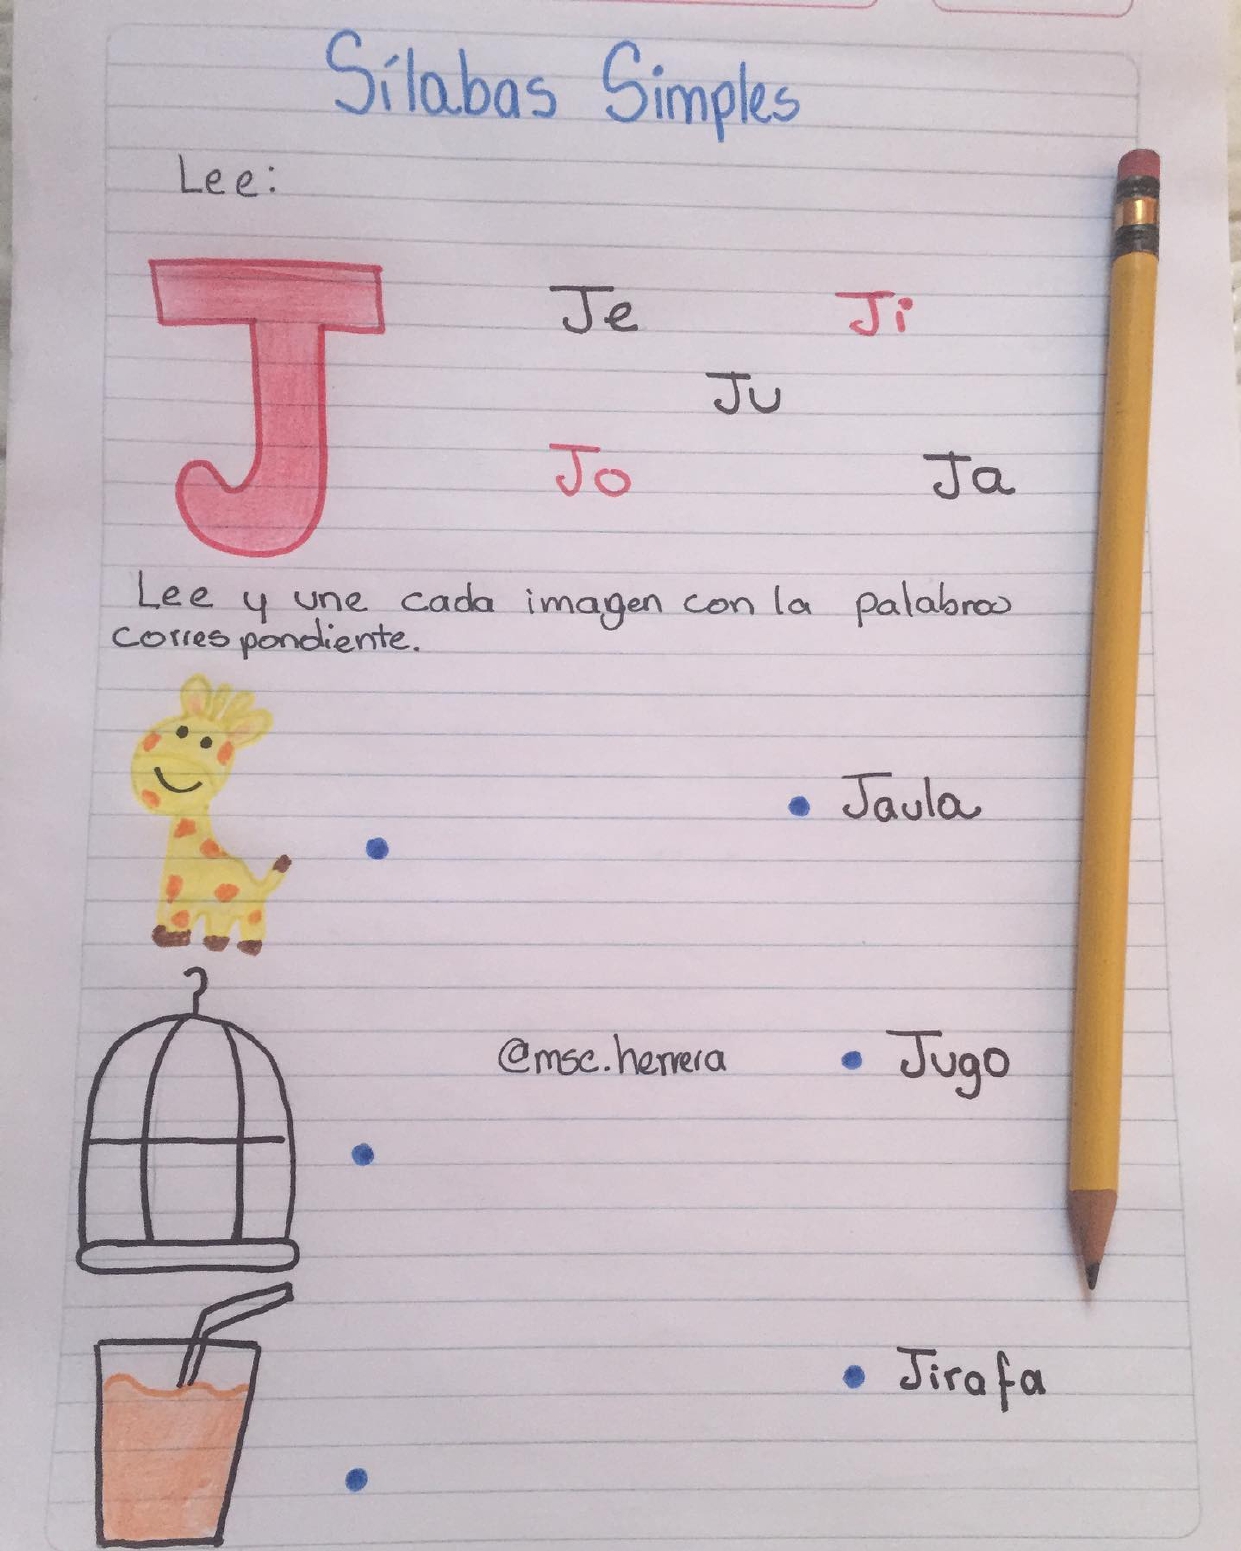 Sílabas Simples
Lee:
J
Je Ji
Ju
Jo Ja
Lee y une cada imagen con la palabra
correspondiente.
Jaula
@msc.herrera
Jugo
Jirafa